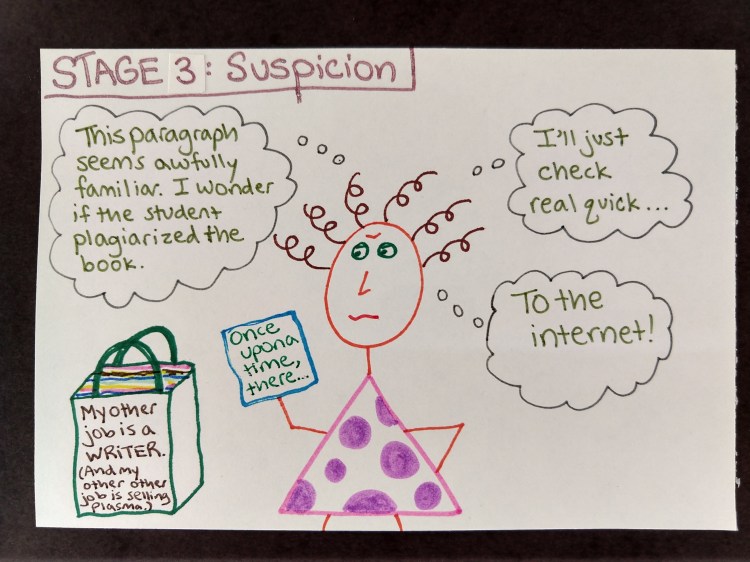 STAGE 3: Suspicion
This paragraph
seems awfully
familiar. I wonder
if the student
plagiarized the
book.
I'll just
check
real quick...
To the
internet!
Once
upon a
time,
there...
My other
job is a
WRITER.
(And my
other other
job is selling
plasma.)